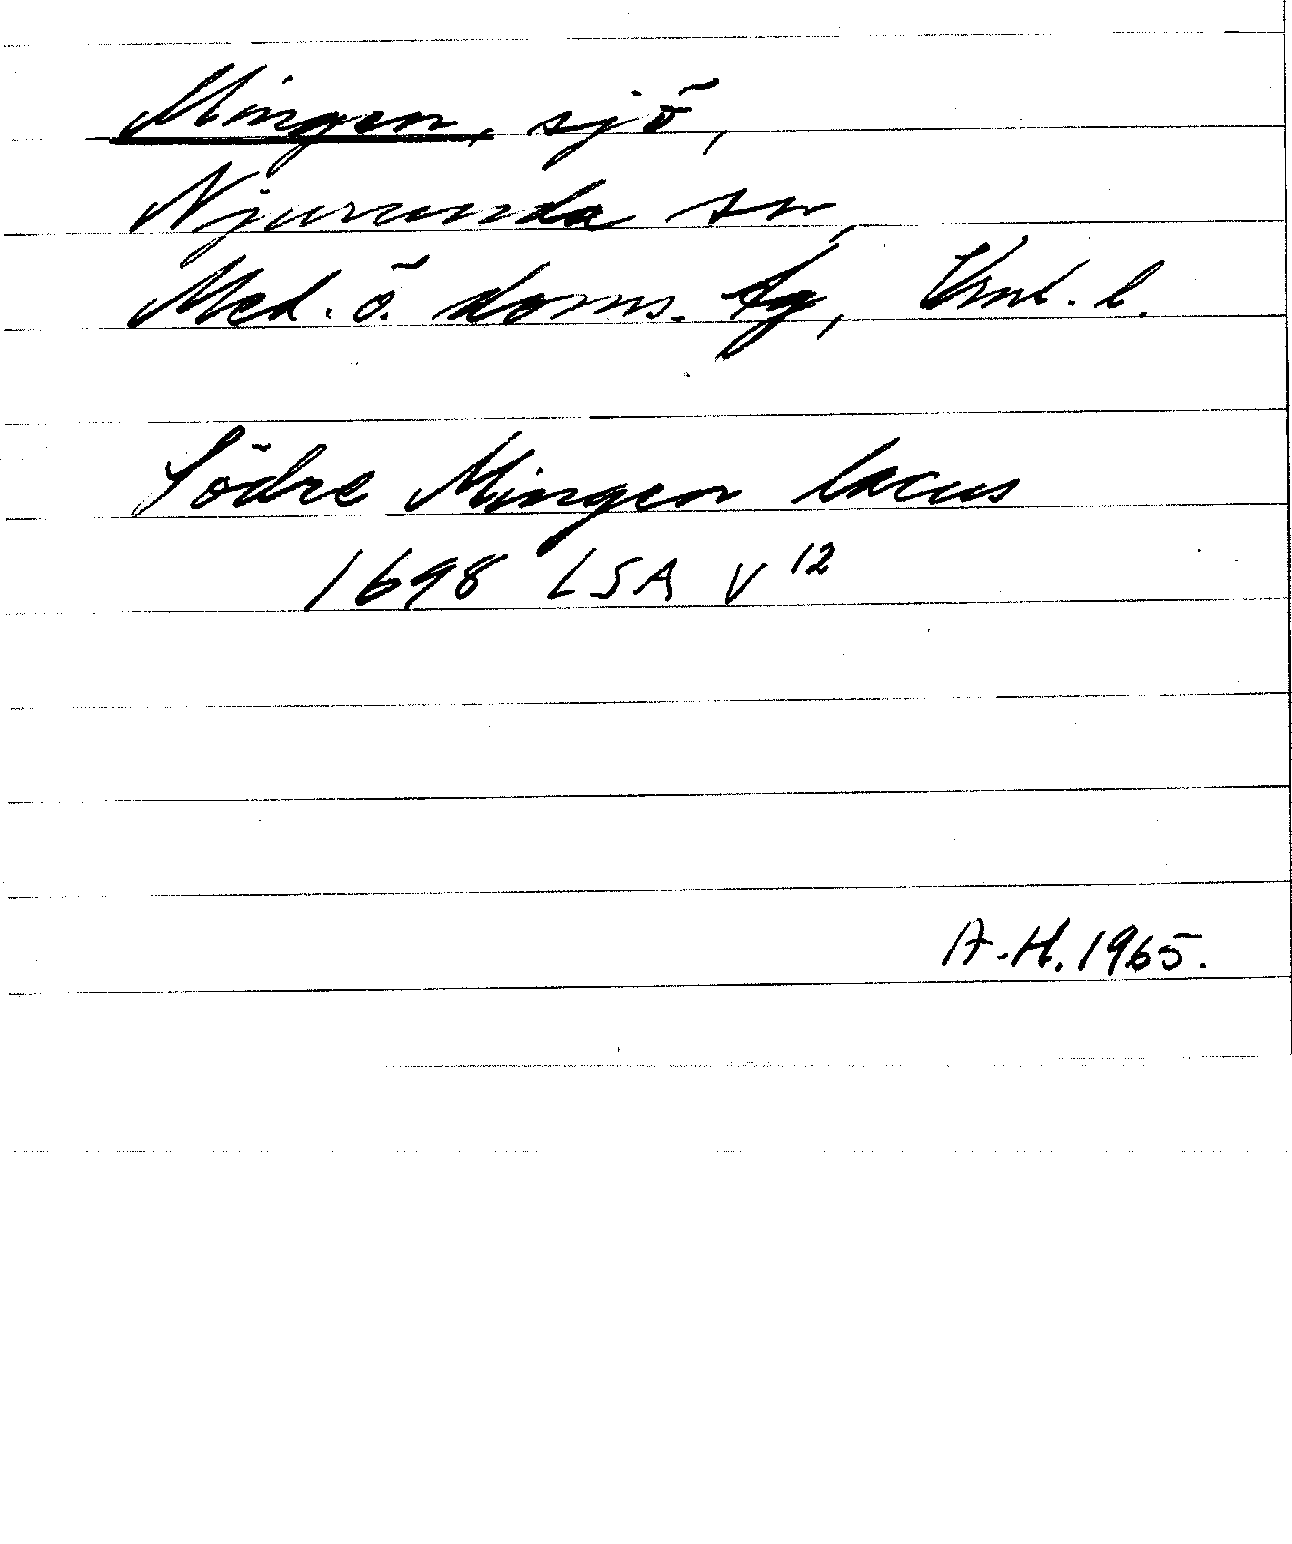 Mingen, sjö,
Njurunda sn,
Med. ö. doms. tg, Vnl. l.
Södre Mingen lacus
1698 LSA V 12
A.H. 1965.